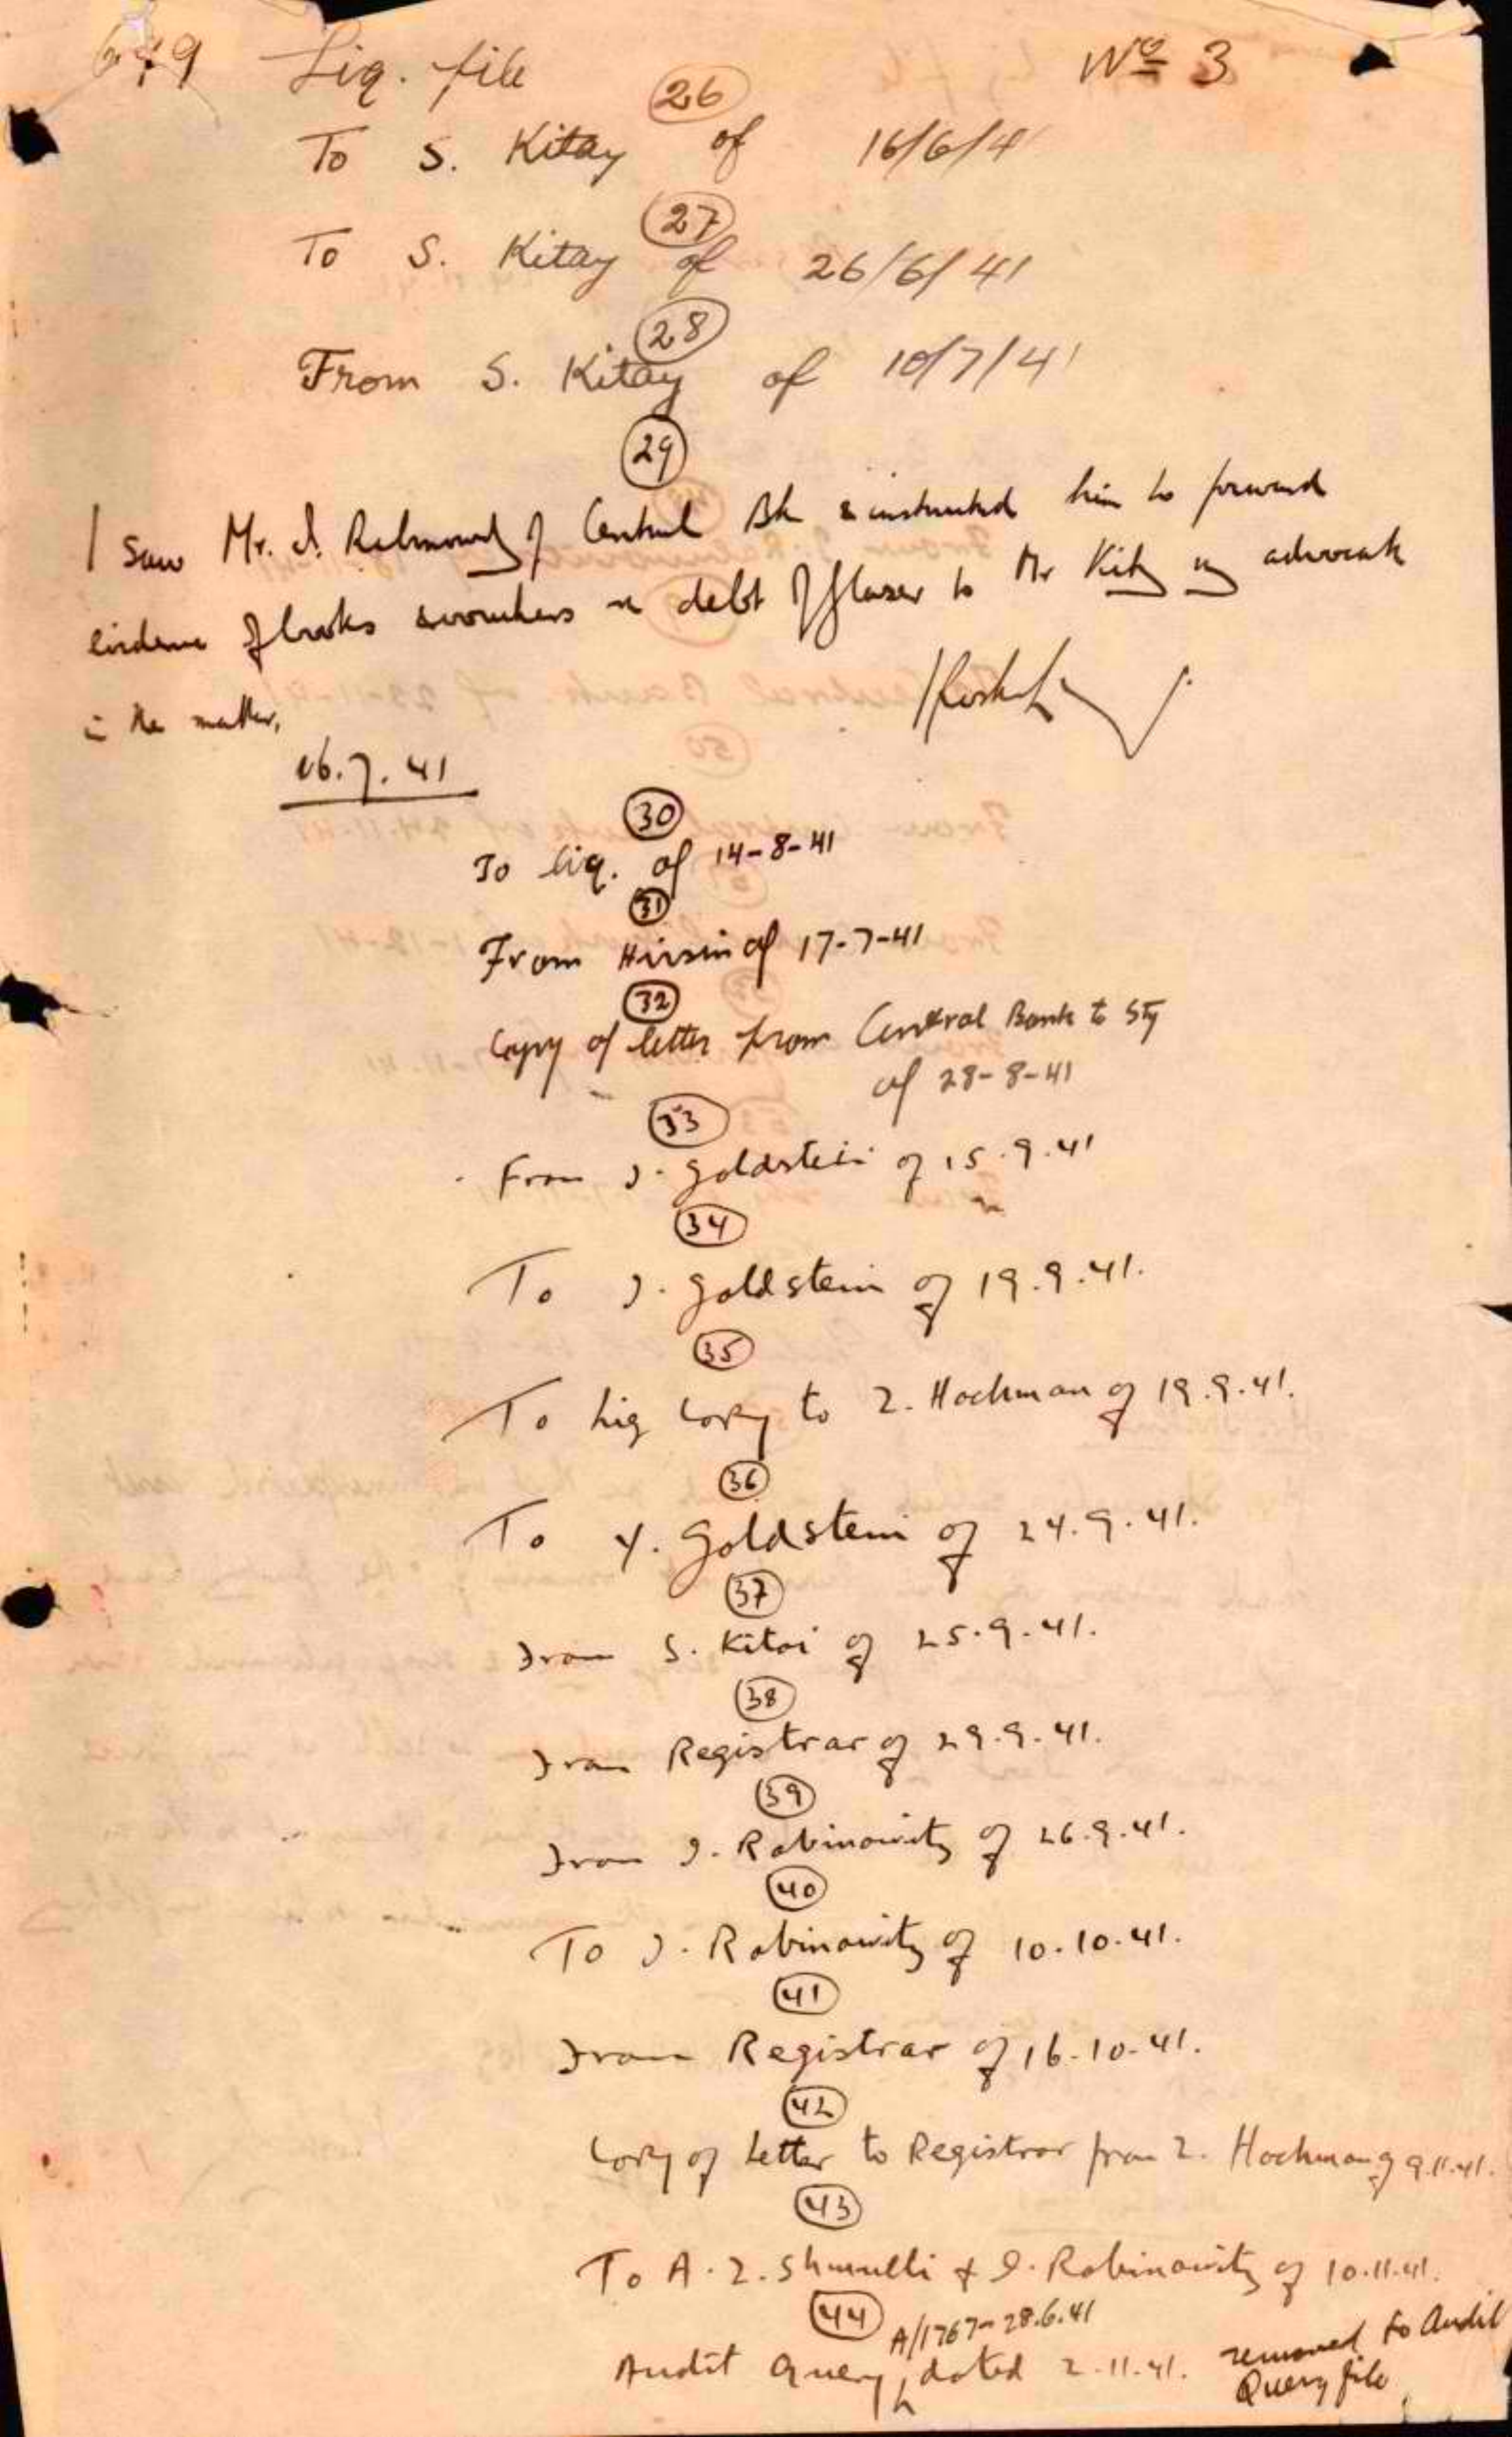 Liq. file Nº 3
26
To S. Kitay of 16/6/41
27
To S. Kitay of 26/6/41
28
From S. Kitay of 10/7/41
29
I saw Mr. I. Rabinowitz of Central Bk & instructed him to forward
evidence of books & vouchers re debt of Glaser to Mr Kitay my advocate
in the matter.
16.7.41
30
To Liq. of 14-8-41
31
From of 17-7-41
32
Copy of letter from Central Bank to
of 28-8-41
33
From J. Goldstein of 15.9.41
34
To J. Goldstein of 19.9.41.
35
To Liq Copy to Z. Hochman of 19.9.41.
36
To Y. Goldstein of 24.9.41.
37
From S. Kitai of 25.9.41.
38
From Registrar of 29.9.41.
39
From I. Rabinowitz of 26.9.41.
40
To I. Rabinowitz of 10.10.41.
41
From Registrar of 16.10.41.
42
Copy of Letter to Registrar from Z. Hochman of 9.11.41.
43
To A. Z. Shmulli & I. Rabinowitz of 10.11.41.
44
A/1767-28.6.41
Audit Query dated 2.11.41. removed to Audit
Query file